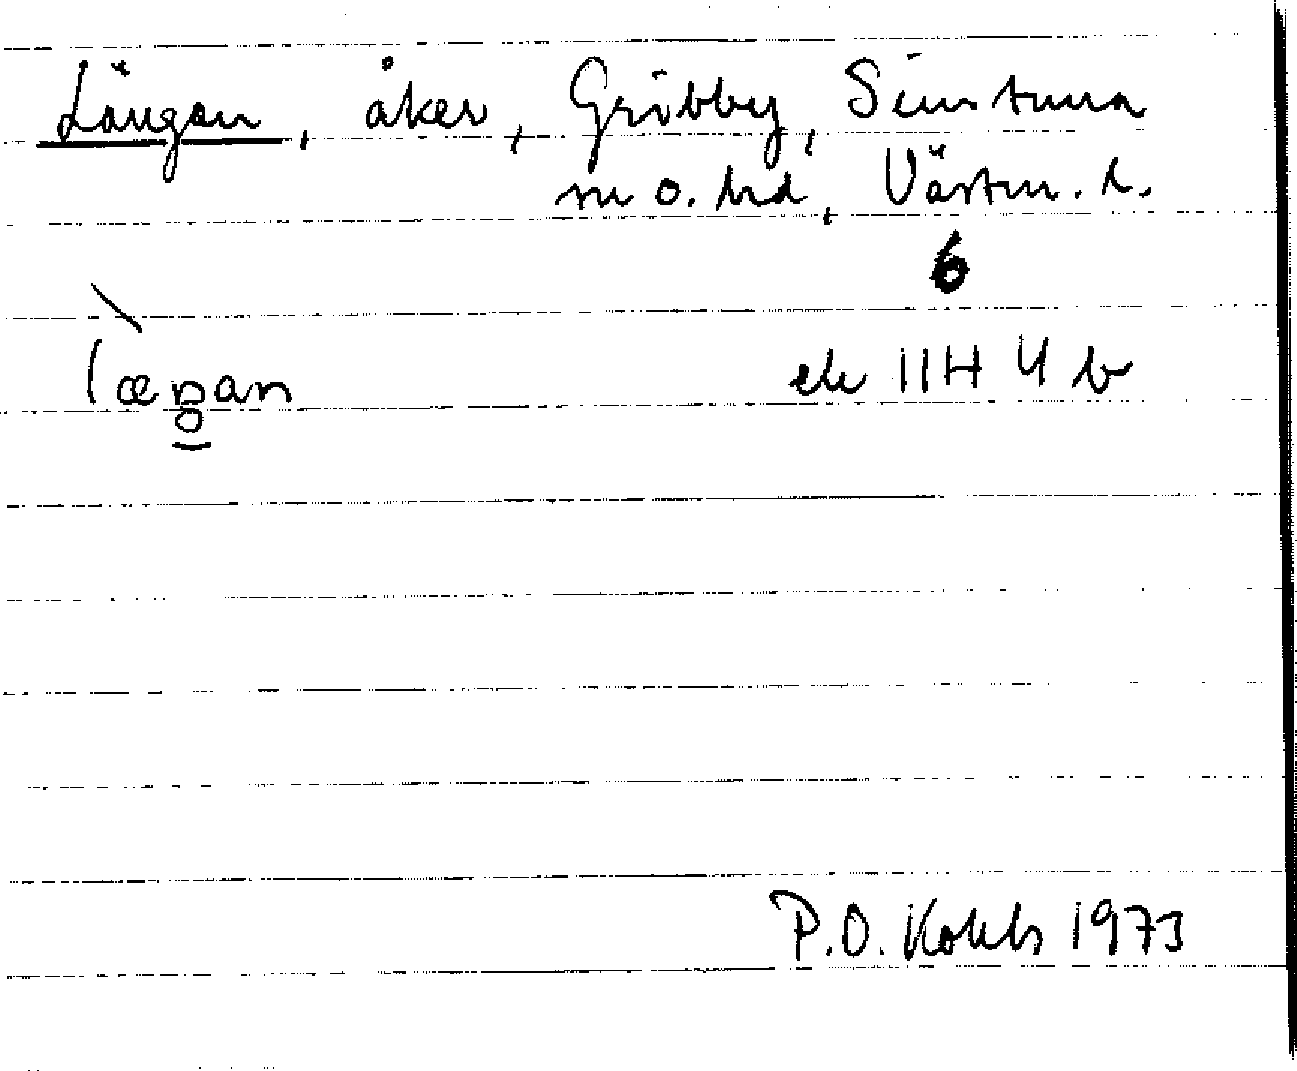 Längan, åker, Gröbby, Simtuna
sn o. hd, Västm. l.
6
læŋan
ek 11H 4 b
P.O. 1973